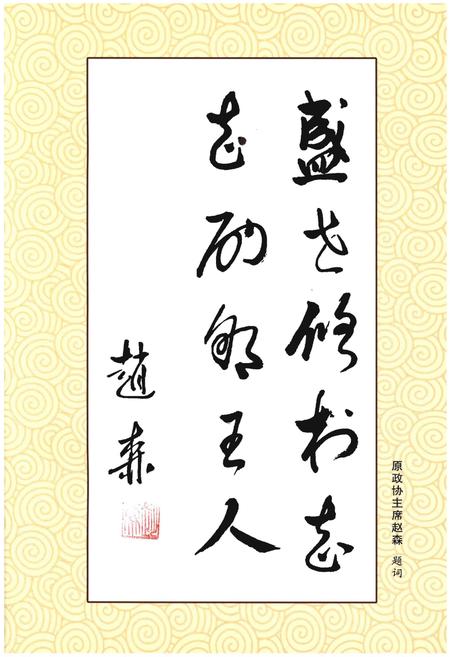 盛世修村志
志励王人
趙森
原政协主席赵森 题词